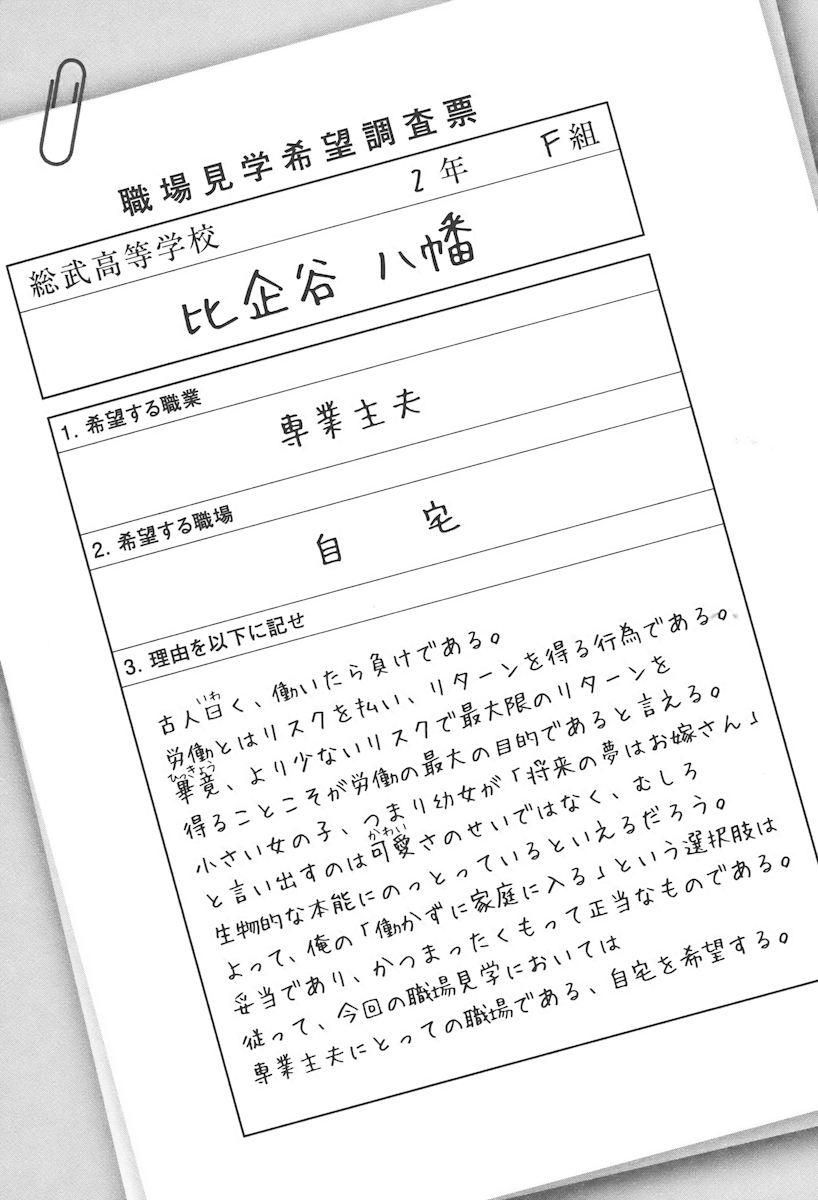 職場見学希望調査票
総武高等学校 2年 F組
比企谷 八幡
1. 希望する職業
専業主夫
2. 希望する職場
自 宅
3. 理由を以下に記せ
古人曰く、働いたら負けである。
労働とはリスクを払い、リターンを得る行為である。
畢竟、より少ないリスクで最大限のリターンを
得ることこそが労働の最大の目的であると言える。
小さい女の子、つまり幼女が「将来の夢はお嫁さん」
と言い出すのは可愛さのせいではなく、むしろ
生物的な本能にのっとっているといえるだろう。
よって、俺の「働かずに家庭に入る」という選択肢は
妥当であり、かつまったくもって正当なものである。
従って、今回の職場見学においては
専業主夫にとっての職場である、自宅を希望する。